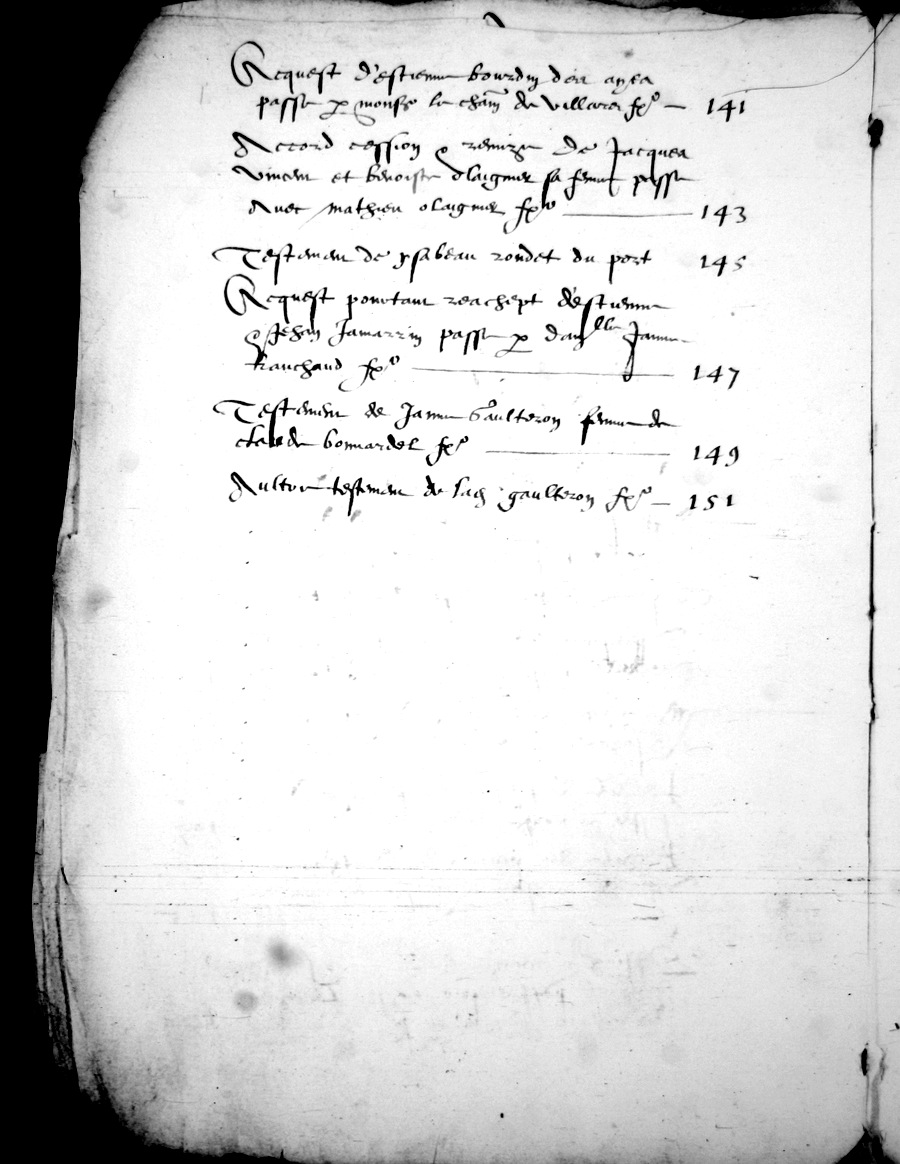 Acquest d'estienne bourdin des ayes
passe p monsr le cham de villars fo 141
Accord cession & remize de Jacques
vincent et benoiste olaignier sa femme passe
Avec mathieu olaignier fo 143
Testament de ysabeau rondet du port 145
Acquest pourtant reachept d'estienne
& Jehan Jamarrin passe p damlle Janne
Ranchaud fo 147
Testament de Janne Gaulteron femme de
claude bonnardel fo 149
Aultre testament de lad gaulteron fo 151